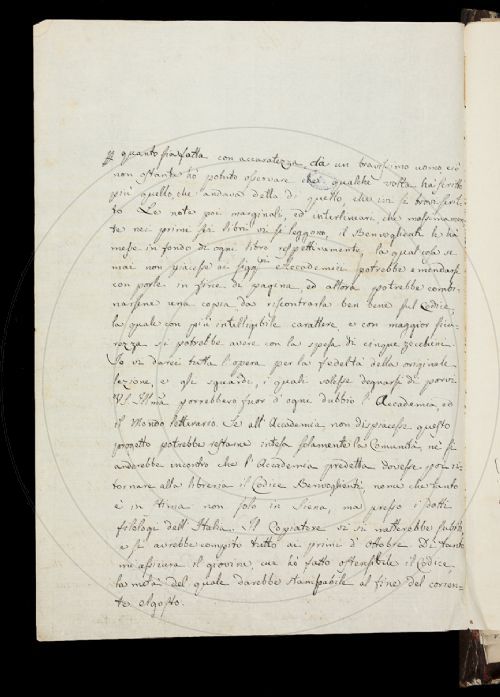 quanto sia fatta con accuratezza da un bravissimo uomo, ciò
non ostante ho potuto osservare che qualche volta ha scritto
più quello, che andava detto di quello, che vi si trova scrit-
to. Le note poi marginali, ed interlineari che massimamen
te nei primi sei libri vi si leggono, il Benvoglienti le ha
messe in fondo di ogni libro respettivamente, la qual cosa se
mai non piacesse ai Sig.ri Accademici potrebbe emendarsi
con porle in fine di pagina, ed allora potrebbe combi-
narsene una copia da riscontrarla ben bene sul Codice,
la quale con più intelligibile carattere, e con maggior sicu-
rezza si potrebbe avere con la spesa di cinque zecchini.
Io vi darei tutta l'opera per la fedeltà della originale
lezione, e gli sguardi, i quali volesse degnarsi di porvi
porrebbero fuor d'ogni dubbio l'Accademia, ed
il Mondo letterario. Se all'Accademia non dispiacesse questo
progetto potrebbe restarne intesa solamente la Comunità, nè si
andarebbe incontro che l'Accademia predetta dovesse poi ri-
tornare alla libreria il Codice Benvoglienti, nome che tanto
è in stima non solo in Siena, ma presso i dotti
filologi dell'Italia. Il Copiatore vi si metterebbe subito,
e si avrebbe compito tutto ai primi d'Ottobre. Di tanto
mi assicura il giovine, cui ho fatto ostensibile il Codice,
la metà del quale darebbe stampabile al fine del corren-
te Agosto.